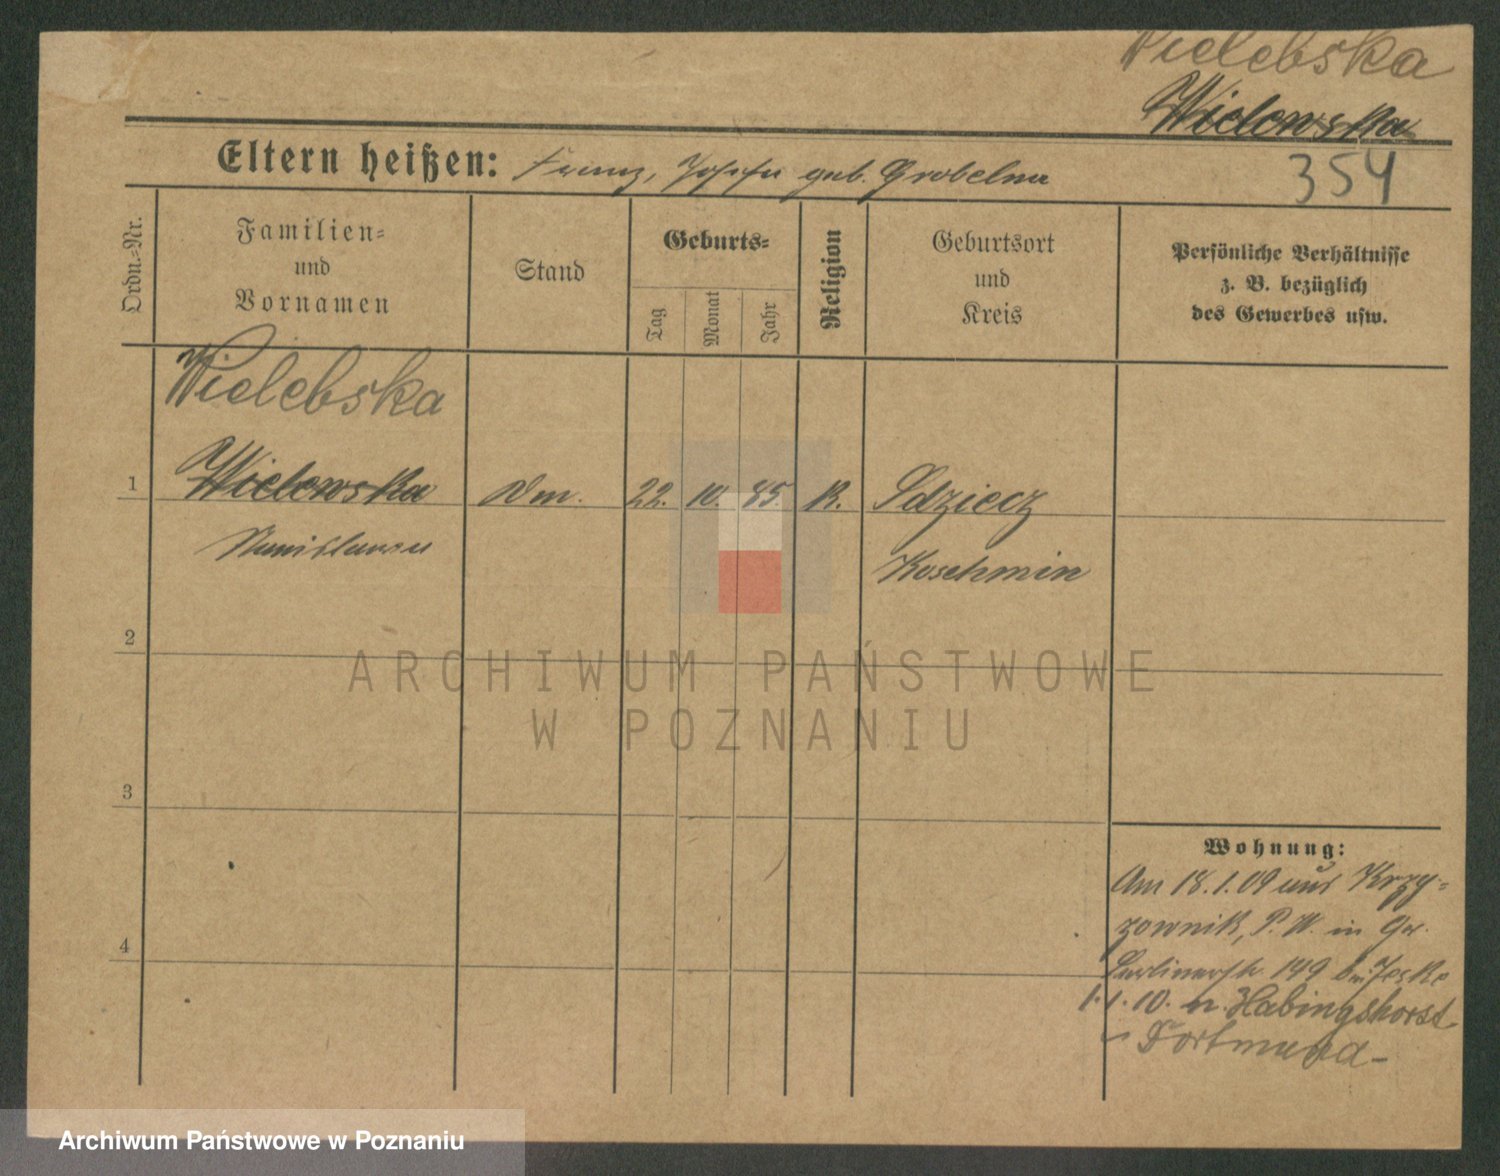 Wielebska
Wielowska
Eltern heißen: Franz, Josefa geb. Grobelna
354
Ordn.-Nr.
Familien-
und
Vornamen
Stand
Geburts-
Tag
Monat
Jahr
Religion
Geburtsort
und
Kreis
Persönliche Verhältnisse
z. B. bezüglich
des Gewerbes usw.
Wielebska
1 Wielowska Dm. 22. 10. 85. K. Sdziecz
Stanislawa Koschmin
2
ARCHIWUM PAŃSTWOWE
W POZNANIU
3
Wohnung:
Am 18.1.09 aus Krzy-
zownik, P. W. in Gr.
4
Berlinerstr. 149 bei Jeske
1.1.10. n. Habingshorst
Dortmund
Archiwum Państwowe w Poznaniu